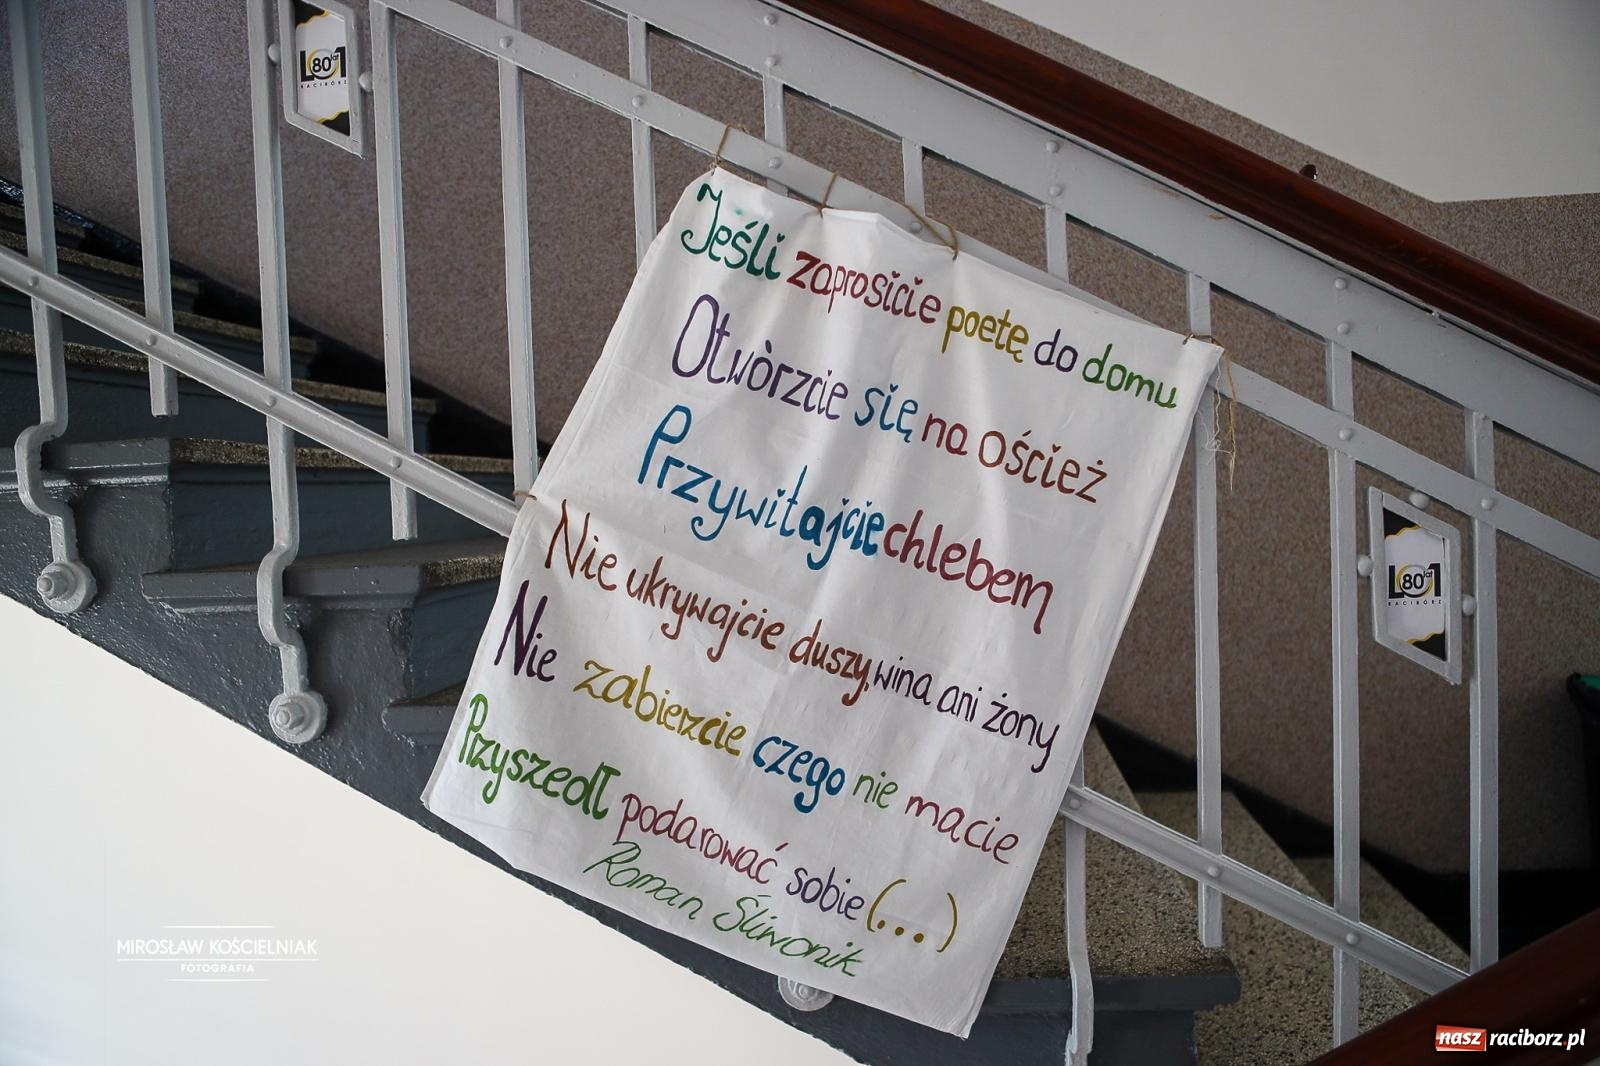 Jeśli zaprosicie poetę do domu
Otwórzcie się na oścież
Przywitajcie chlebem
Nie ukrywajcie duszy, wina ani żony
Nie zabierzcie czego nie macie
Przyszedł podarować sobie (...)
Roman Śliwonik
LO1
80 lat
RACIBÓRZ
LO1
80 lat
RACIBÓRZ
MIROSŁAW KOŚCIELNIAK
FOTOGRAFIA
nasz raciborz.pl